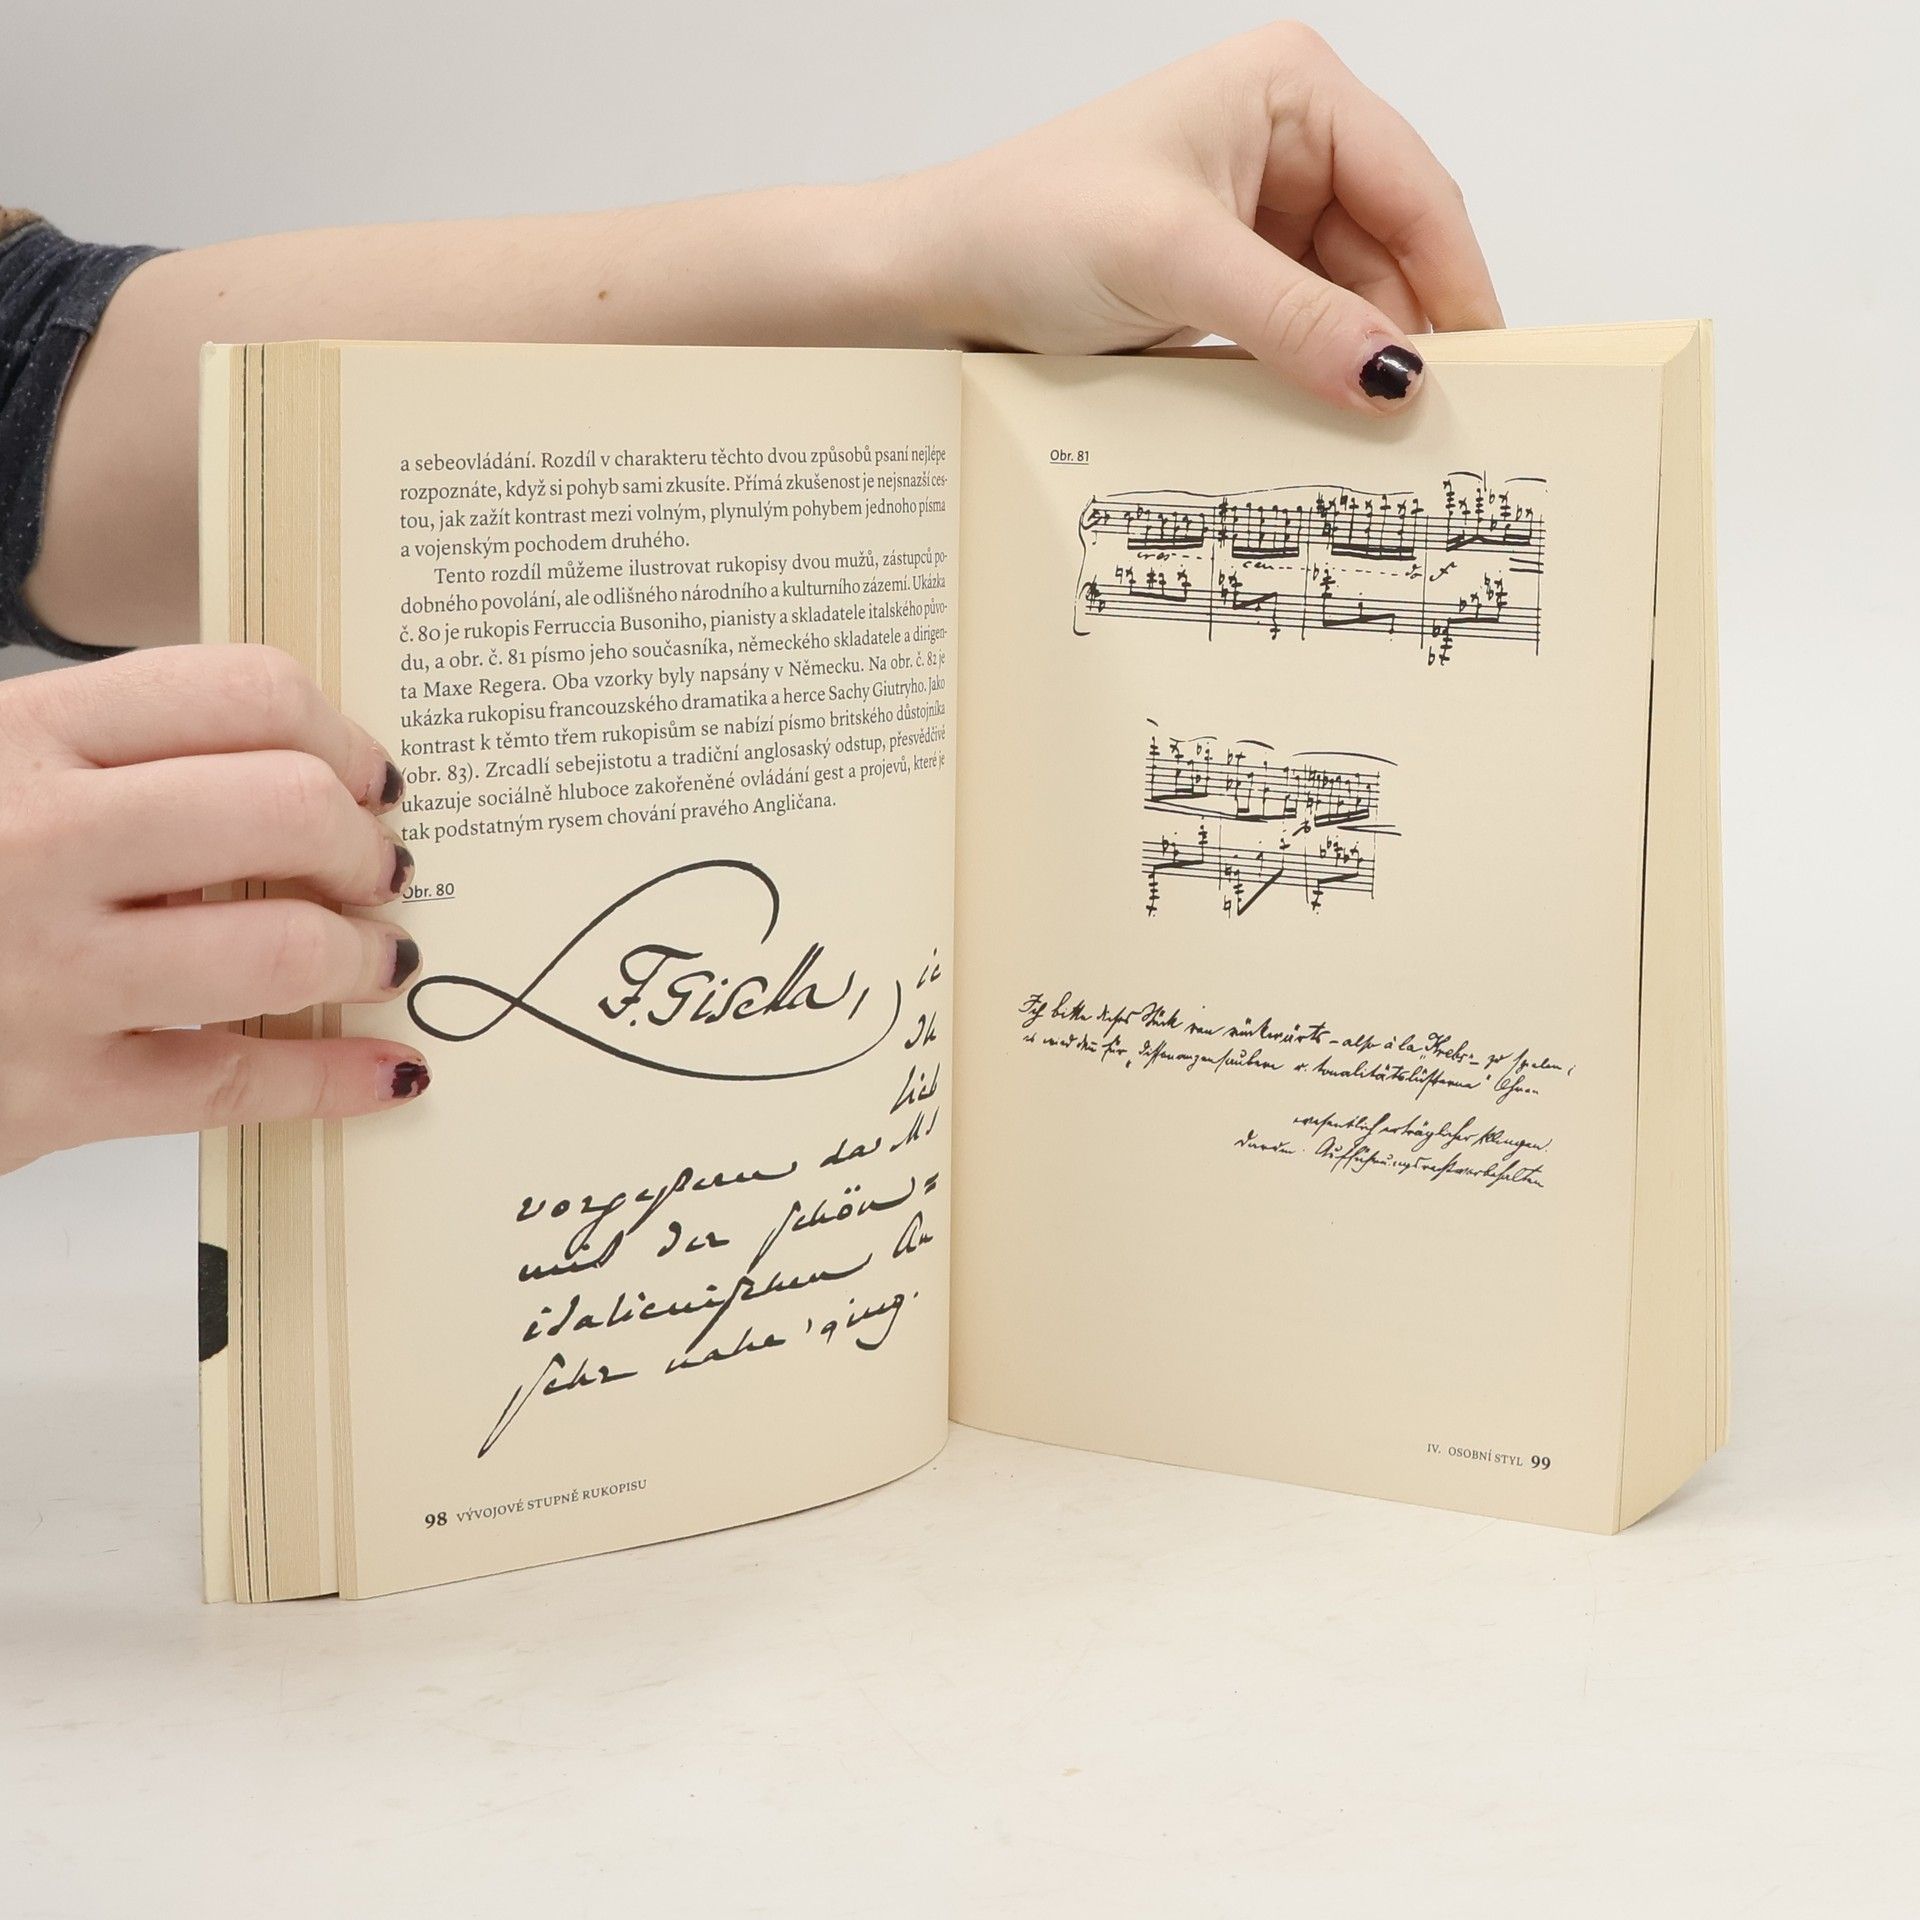 a sebeovládání. Rozdíl v charakteru těchto dvou způsobů psaní nejlépe
rozpoznáte, když si pohyb sami zkusíte. Přímá zkušenost je nejsnazší ces-
tou, jak zažít kontrast mezi volným, plynulým pohybem jednoho písma
a vojenským pochodem druhého.
Tento rozdíl můžeme ilustrovat rukopisy dvou mužů, zástupců po-
dobného povolání, ale odlišného národního a kulturního zázemí. Ukázka
č. 80 je rukopis Ferruccia Busoniho, pianisty a skladatele italského půvo-
du, a obr. č. 81 písmo jeho současníka, německého skladatele a dirigen-
ta Maxe Regera. Oba vzorky byly napsány v Německu. Na obr. č. 82 je
ukázka rukopisu francouzského dramatika a herce Sachy Giutryho. Jako
kontrast k těmto třem rukopisům se nabízí písmo britského důstojníka
(obr. 83). Zrcadlí sebejistotu a tradiční anglosaský odstup, přesvědčivě
ukazuje sociálně hluboce zakořeněné ovládání gest a projevů, které je
tak podstatným rysem chování pravého Angličana.
Obr. 80
F. Gisella,
vorgestern da
mit der schön=
italienischen
sehr nahe ging.
98 VÝVOJOVÉ STUPNĚ RUKOPISU
Obr. 81
cres - - - cen - - - do f
Ich bitte dieses Stück von rückwärts – also à la „Krebs" – zu spielen;
es wird dann für „dissonanzensaubere u. tonalitätslüsterne" Ohren
wesentlich erträglicher klingen.
Darum. Aufführungsrecht vorbehalten
IV. OSOBNÍ STYL 99